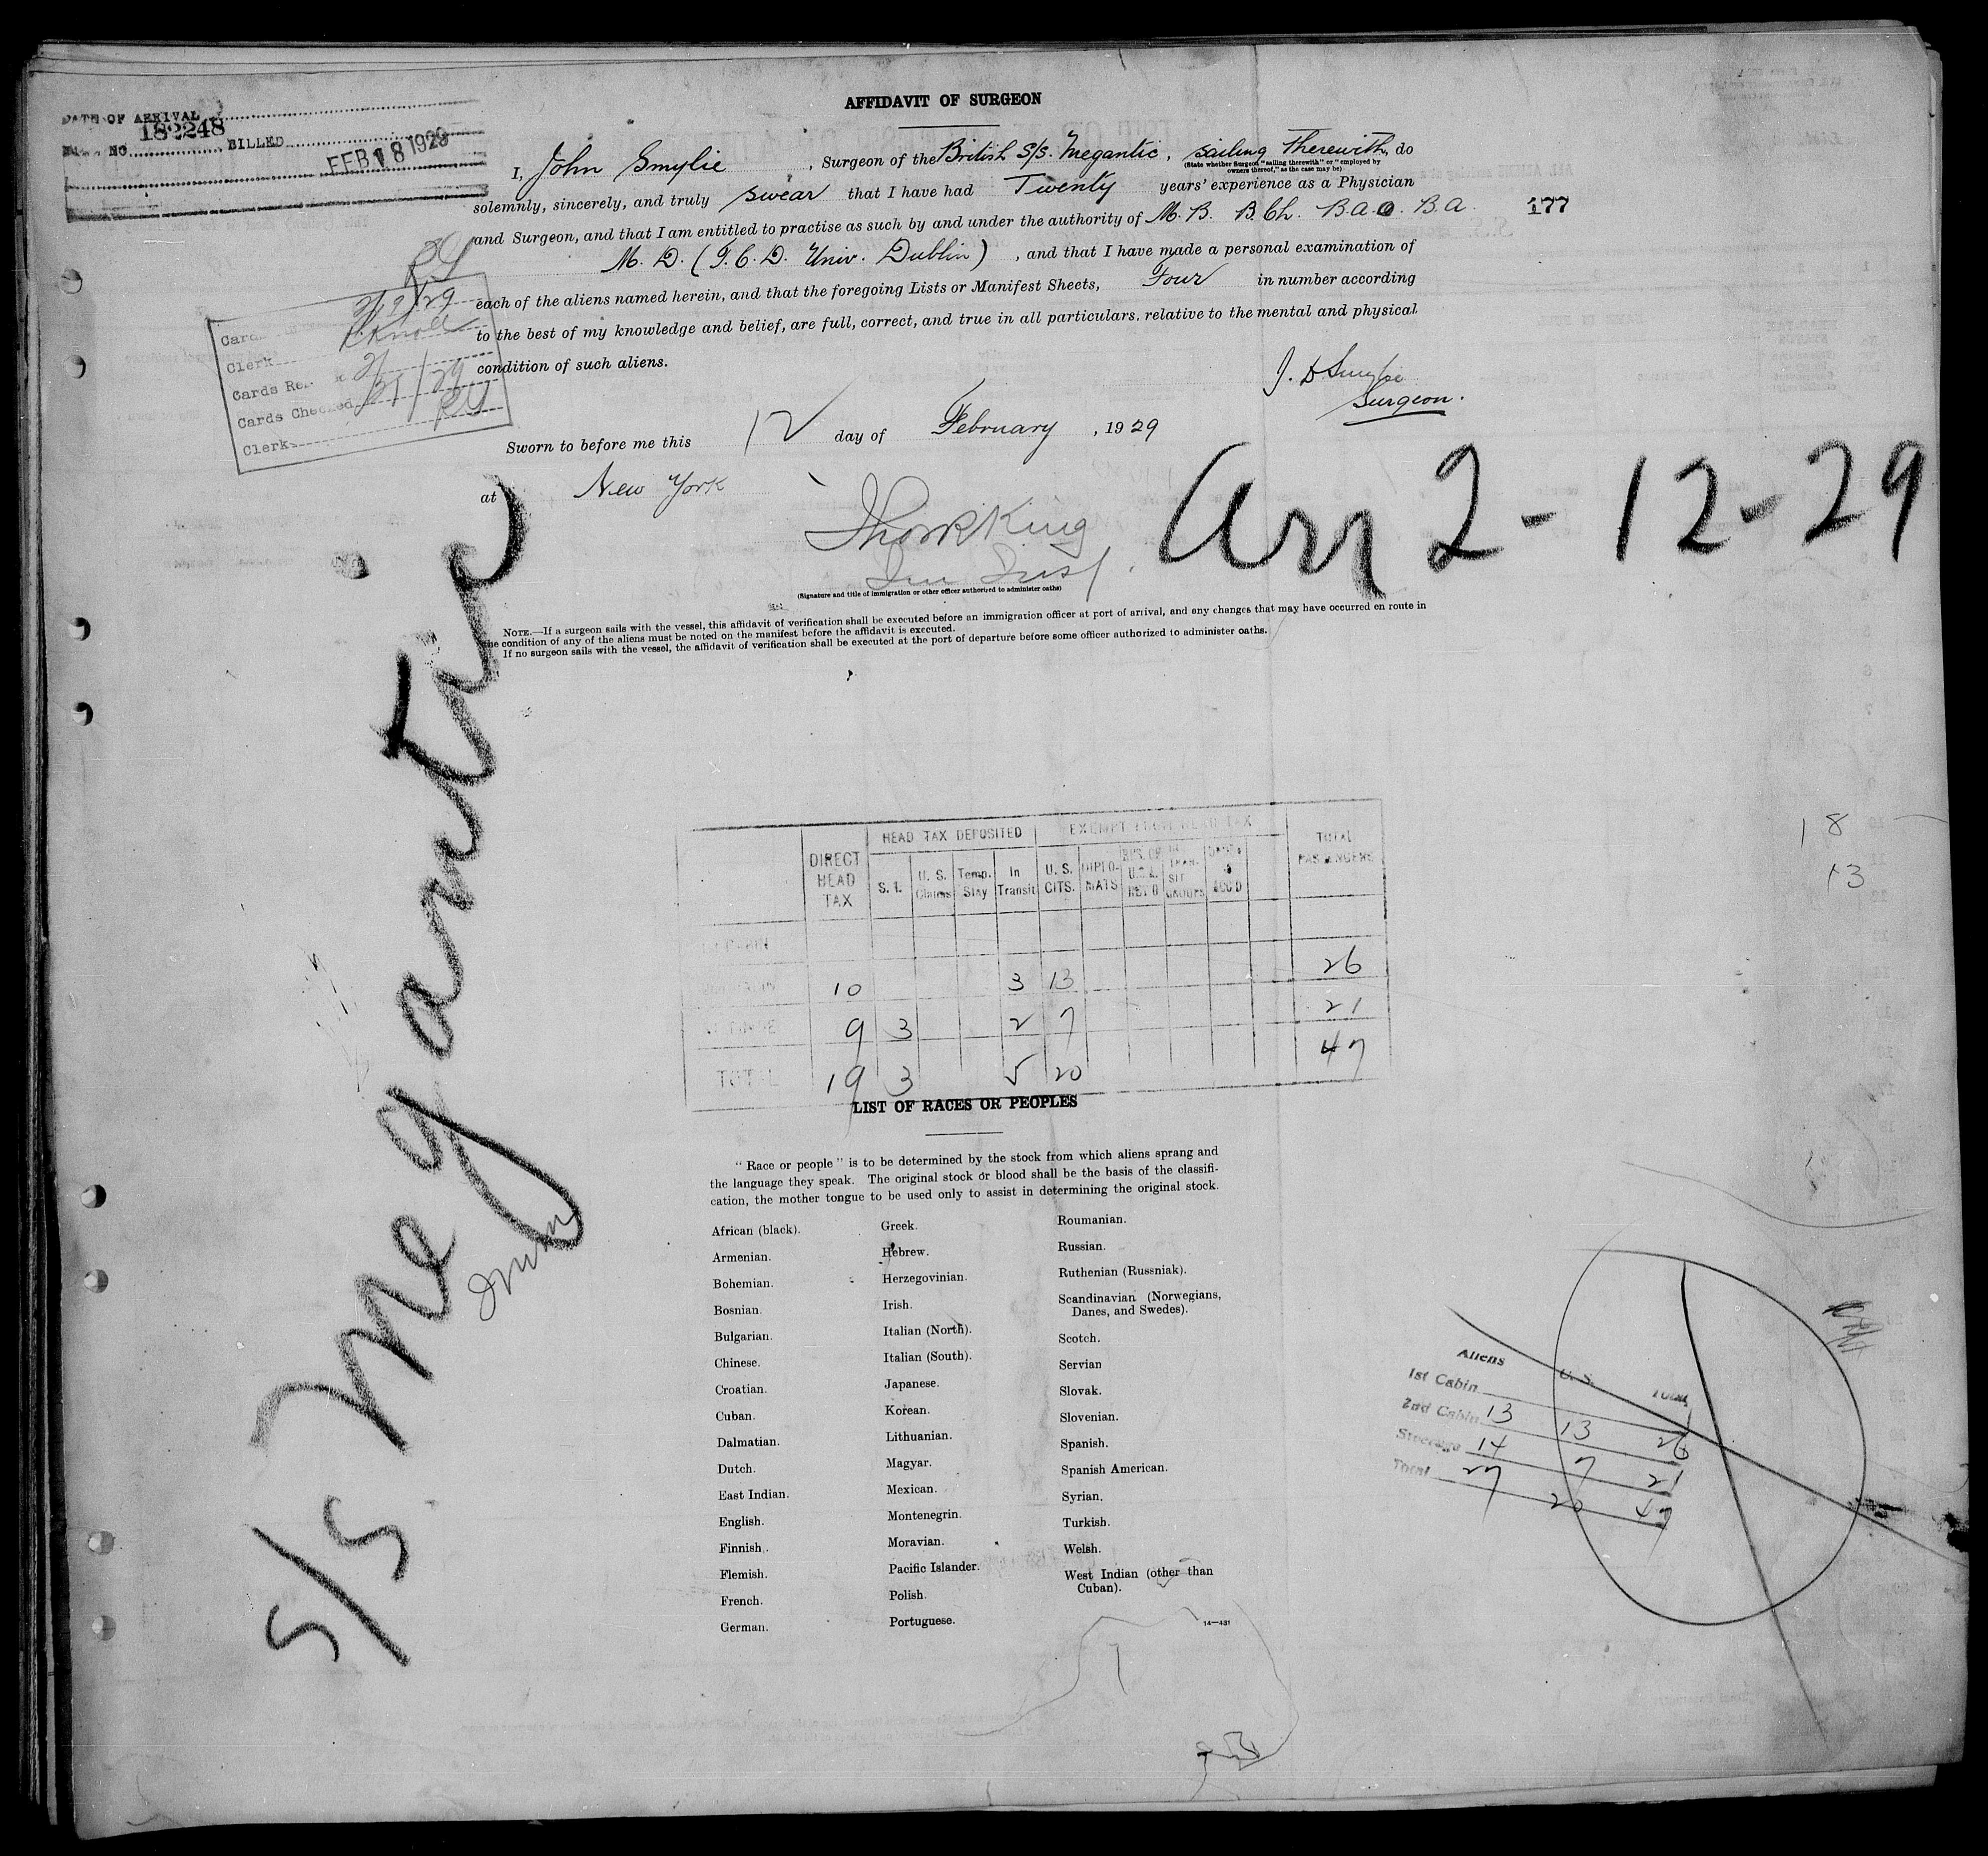 AFFIDAVIT OF SURGEON
DATE OF ARRIVAL
182248
NO. BILLED
FEB 18 1929
I, John Smylie, Surgeon of the British S/S. Megantic, sailing therewith, do
(State whether Surgeon "sailing therewith" or "employed by
owners thereof," as the case may be)
solemnly, sincerely, and truly swear that I have had Twenty years' experience as a Physician
and Surgeon, and that I am entitled to practise as such by and under the authority of M. B. B. Ch. B.A.O. B.A.
177
M. D. (T. C. D. Univ. Dublin), and that I have made a personal examination of
each of the aliens named herein, and that the foregoing Lists or Manifest Sheets, Four in number according
to the best of my knowledge and belief, are full, correct, and true in all particulars, relative to the mental and physical
condition of such aliens.
Clerk
Cards
Cards Checked
Clerk
J. D. Smylie
Surgeon.
Sworn to before me this 12 day of February, 1929
at New York
Arr 2-12-29
King
(Signature and title of immigration or other officer authorized to administer oaths)
NOTE.—If a surgeon sails with the vessel, this affidavit of verification shall be executed before an immigration officer at port of arrival, and any changes that may have occurred en route in
the condition of any of the aliens must be noted on the manifest before the affidavit is executed.
If no surgeon sails with the vessel, the affidavit of verification shall be executed at the port of departure before some officer authorized to administer oaths.
S/S Megantic
HEAD TAX DEPOSITED EXEMPT FROM HEAD TAX
DIRECT HEAD TAX S. I. U. S. Claims Temp. Stay In Transit U. S. CITS. DIPLOMATS TOTAL PASSENGERS
10 3 13 26
9 3 2 7 21
TOTAL 19 3 5 20 47
18
13
LIST OF RACES OR PEOPLES
"Race or people" is to be determined by the stock from which aliens sprang and
the language they speak. The original stock or blood shall be the basis of the classifi-
cation, the mother tongue to be used only to assist in determining the original stock.
African (black).
Armenian.
Bohemian.
Bosnian.
Bulgarian.
Chinese.
Croatian.
Cuban.
Dalmatian.
Dutch.
East Indian.
English.
Finnish.
Flemish.
French.
German.
Greek.
Hebrew.
Herzegovinian.
Irish.
Italian (North).
Italian (South).
Japanese.
Korean.
Lithuanian.
Magyar.
Mexican.
Montenegrin.
Moravian.
Pacific Islander.
Polish.
Portuguese.
Roumanian.
Russian.
Ruthenian (Russniak).
Scandinavian (Norwegians,
Danes, and Swedes).
Scotch.
Servian
Slovak.
Slovenian.
Spanish.
Spanish American.
Syrian.
Turkish.
Welsh.
West Indian (other than
Cuban).
14—431
Aliens U. S. Total
1st Cabin
2nd Cabin 13 13 26
Steerage 14 7 21
Total 27 20 47